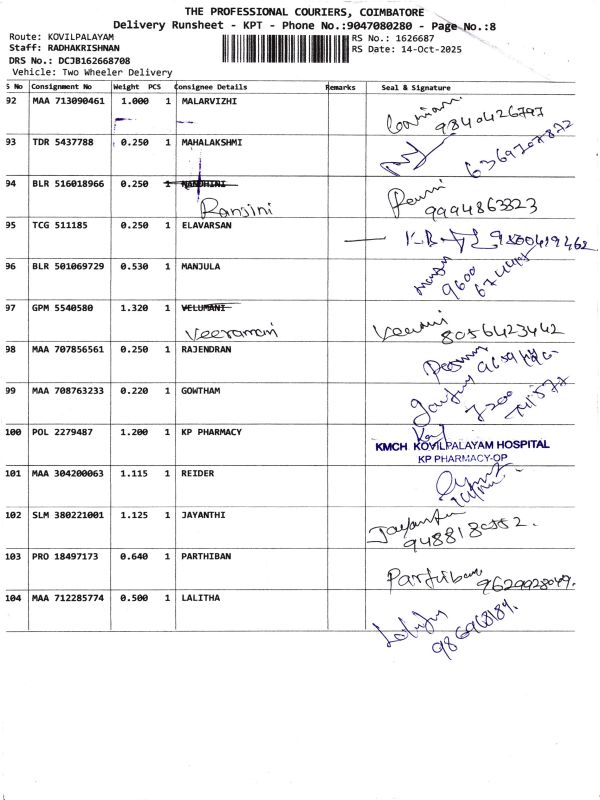 THE PROFESSIONAL COURIERS, COIMBATORE
Delivery Runsheet - KPT - Phone No.:9047080280 - Page No.:8
Route: KOVILPALAYAM
Staff: RADHAKRISHNAN
DRS No.: DCJB162668708
Vehicle: Two Wheeler Delivery
RS No.: 1626687
RS Date: 14-Oct-2025
S No Consignment No Weight PCS Consignee Details Remarks Seal & Signature
92 MAA 713090461 1.000 1 MALARVIZHI
9840426797
93 TDR 5437788 0.250 1 MAHALAKSHMI
94 BLR 516018966 0.250 1 NANDHINI
Ranjini
9994863323
95 TCG 511185 0.250 1 ELAVARSAN
96 BLR 501069729 0.530 1 MANJULA
97 GPM 5540580 1.320 1 VELUMANI
Veeramani
8056423442
98 MAA 707856561 0.250 1 RAJENDRAN
99 MAA 708763233 0.220 1 GOWTHAM
100 POL 2279487 1.200 1 KP PHARMACY
KMCH KOVILPALAYAM HOSPITAL
KP PHARMACY-OP
101 MAA 304200063 1.115 1 REIDER
102 SLM 380221001 1.125 1 JAYANTHI
103 PRO 18497173 0.640 1 PARTHIBAN
Parthiban
9629928049.
104 MAA 712285774 0.500 1 LALITHA